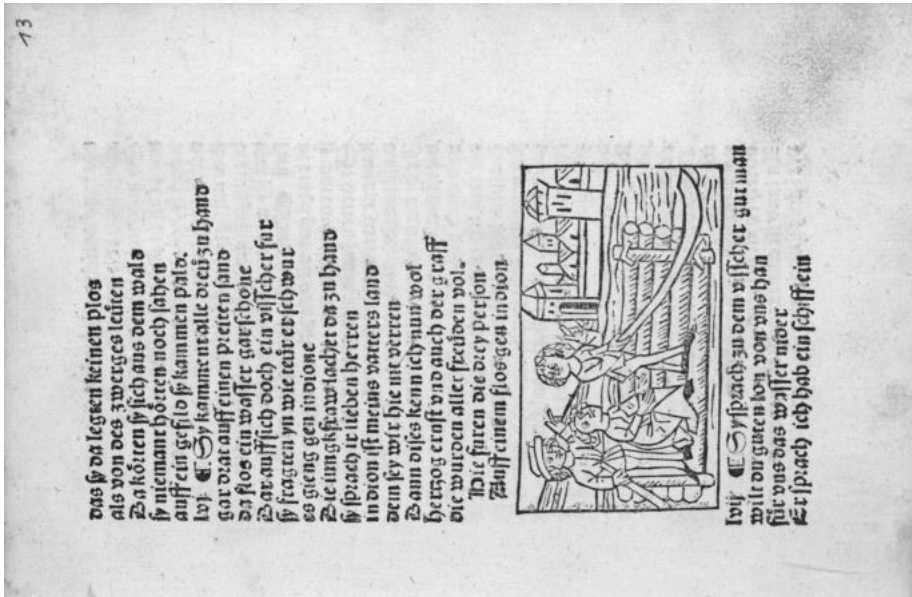 13
das sy da legten keinen plos
als von des zwerges leuten
Da körten sy sich aus dem wald
sy niemant hörten noch sahen
auff ein geschlos sy kummen pald
¶ Sy kamen in alle dratz zu hand
gar drat auff einen preiten sand
da flos ein wasser gar schone
Dar auff sich doch ein visscher fur
sy fragten in wie redt er schwur
es gieng gen indione
Die iungkfraw sprache da zu hand
sy sprach ir lieben herren
indion ist meins vaters land
dem sey wir hie nit verren
Dann dises kenn ich mann wol
hertzog ernst vnd auch der graff
die wurden aller freuden vol.
Die furen die drey person
Auff einem flos gen indion
¶ Sy sprach zu dem visscher gut man
wilt du guten lon von vns han
für vns das wasser nider
Er sprach ich hab ein schifflein